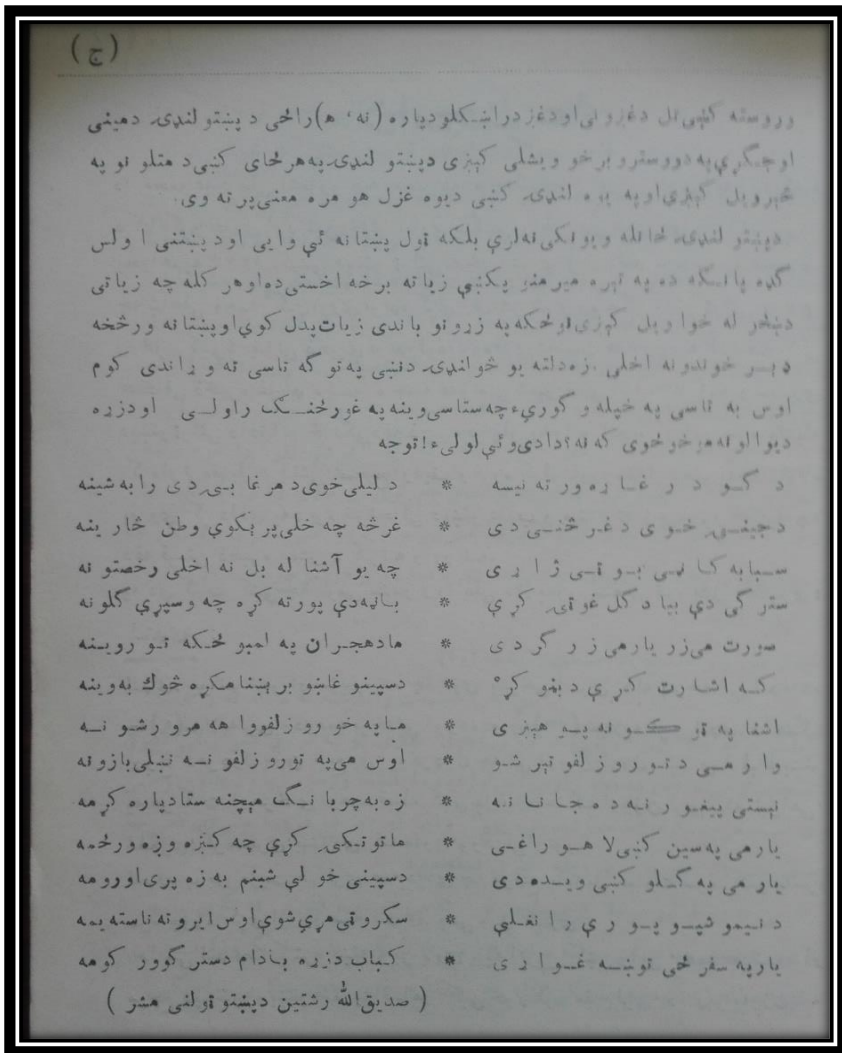 (ج)
وروسته کښې تل دغزونی او دغږ دراښکلو دپاره (نه، ه) راځی د پښتو لنډۍ دمینی
او جنګړې په دوو سترو برخو ویشلی کېږی دپښتو لنډۍ په هر ځای کښی د متلو نو په
څېر ویل کېږی او په یوه لنډۍ کښی دیوه غزل هو مره معنی پر ته وی.
دپښتو لنډۍ ځانله ویونکی نه لری بلکه ټول پښتانه ئې وایی او د پښتنی اولس
ګډه پانګه ده په تېره میرمنو پکښې زیاته برخه اخستی ده او هر کله چه زیاتی
دښځو له خوا ویل کېږی نو ځکه په زړونو باندی زیات بدل کوي او پښتانه ورڅخه
ډېر خوندونه اخلی. زه دلته یو څو لنډۍ دننبی په توګه تاسی ته وړاندی کوم
اوس به تاسی په خپله وګورئ چه ستاسی وینه په غورځنګ راولی او دزړه
دیوالونه مو خوځوی که نه؟ دا دی وئې لولئ! توجه
د ګودر غاړه ور ته نیسه * د لیلی خوی د مرغابۍ دی را به شینه
دجینۍ خوی د غرڅنی دی * غرڅه چه خلی پرېکوي وطن ځارینه
سبا به کاڼی بوټی ژاړی * چه یو آشنا له بل نه اخلی رخصتونه
سترګی دې بیا د ګل غوټۍ کړې * باڼه دې پورته کړه چه وسپړی ګلونه
صورت می زړ یار می زرګر دی * ما دهجران په لمبو ځکه تو روینه
که اشارت کړې د بڼو کړه * دسپینو غاښو برېښنا مکړه څوک به وینه
اشنا په ټوکو نه پوهېږی * ما په خورو زلفو واهه مرور شو نه
وار می د تورو زلفو تېر شو * اوس می په تورو زلفو نه ننبلی بازونه
نېستی پېغور نه ده جانانه * زه به چربانګ مېچنه ستا دپاره کړمه
یار می په سین کښی لاهو راغی * ما توتکۍ کړې چه کېږه وږه ورځمه
یار می په ګلو کښی ویده دی * دسپینی خولې شبنم به زه پرې اورومه
د نیمو شپو پورې را نغلې * سکروټی مړې شوې اوس ایرو ته ناسته یمه
یار په سفر ځی توښه غواړی * کباب دزړه بادام دسترګو ور کومه
( صدیق الله رشتین دپښتو ټولنی مشر )